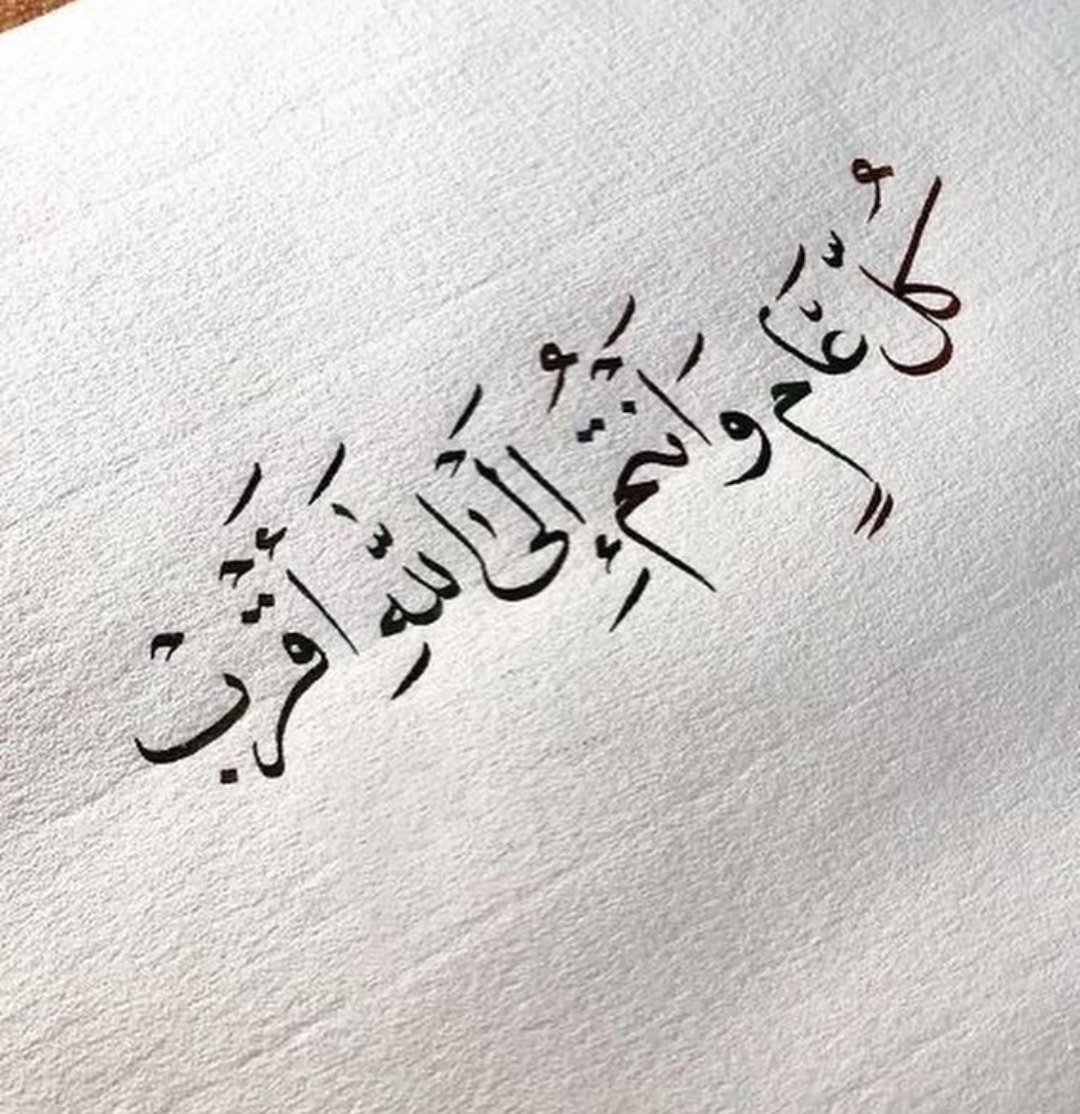 كُلُّ عَامٍ وَانْتُمْ إِلَى اللّٰهِ أَقْرَبْ